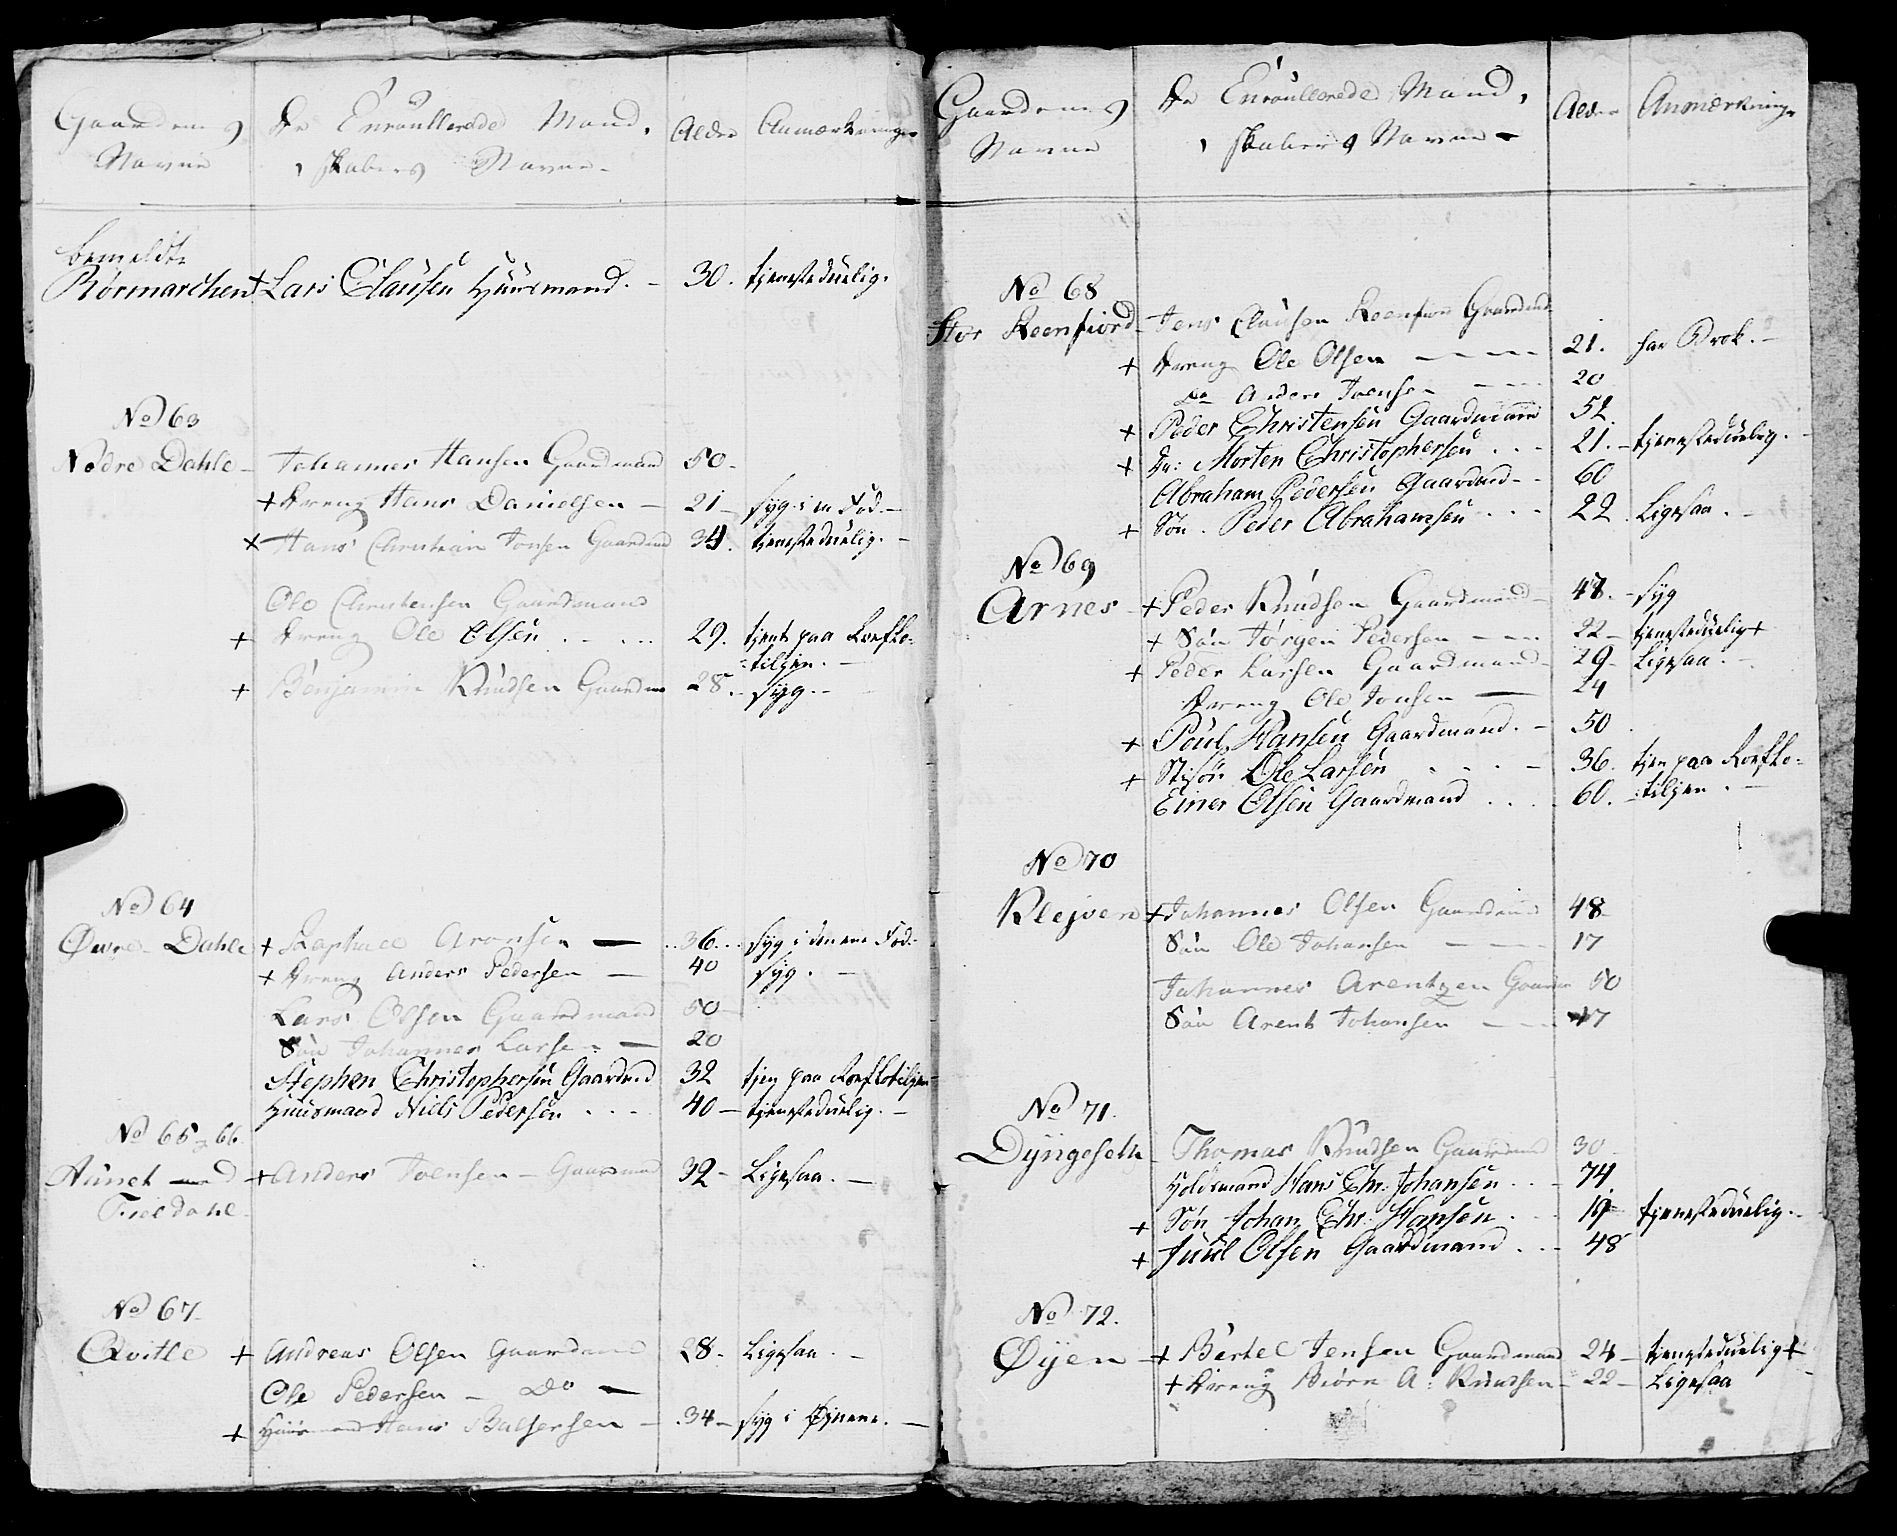 Gaardenes De Enroullerede Mand, Alder Anmærkninger
Navne skabers Navne
bemeldte
Rörmarchen + Lars Clausen Huusmand. - 30. tjenestduelig.
No 63
Nedre Dahle - Johannes Hansen Gaardmand 50 -
+ Dreng Hans Danielsen - 21 - syg i en Fod. -
x Hans Christian Jonsen Gaardmd 34. tjenestduelig. -
Ole Christensen Gaardmand
+ Dreng Ole Olsen 29. tjent paa Roeflo-
tiljen. -
+ Benjamin Knudsen Gaardm 28. - syg. -
No 64
Øvre Dahle + Raphael Aronsen - 36. syg i den ene Fod.
+ Dreng Anders Pedersen - 40 syg. -
Lars Olsen Gaardmand 50 -
Sön Johannes Larsen - 20
Stephen Christophersen Gaardmd 32 tjen paa Roeflotiljen
Huusmand Niels Pedersen 40 - tjenesteduelig. -
No 65 & 66.
Aunet med + Anders Joensen - Gaarmand 32 - Ligesaa. -
Fieldahl
No 67.
Qvitle + Andreas Olsen Gaardmand 28 - Ligesaa. -
Ole Pedersen - Do -
+ Huusmand Hans Baltsersen - 34 - syg i Øynene. -
Gaardenes De Enroullerede Mand, Alder Anmærkninger
Navne skabers Navne -
No 68
Stor Roenfiord - Jens Clausen Roenfior Gaardmd
+ Dreng Ole Olsen 21. har Brok. -
Do Anders Joensen 20
+ Peder Christensen Gaardmann 52.
+ Dr: Morten Christophersen 21. - tjenesteduelig. -
Abraham Pedersen Gaardmd - 60
+ Sön. Peder Abrahamsen 22. Ligesaa. -
No 69
Arnes - + Peder Knudsen Gaardmand - 48. - syg
+ Sön Jörgen Pedersen - 22 - tjenesteduelig +
+ Peder Larsen Gaardmand - 29 - Ligesaa. -
Dreng Ole Jonsen - 24
+ Poul Hansen Gaardmand. - 50
+ Stisön Ole Larsen - 36. tjen paa Roeflo-
Einer Olsen Gaardmand 60. - tiljen. -
No 70
Klejven + Johannes Olsen Gaardmd 48
Sön Ole Johansen - 17
Johannes Arentzen Gaardm 50
Sön Arent Johansen - 17
No 71.
Dyngeseth - Thomas Knudsen Gaardmd 30 -
Holdsmand Hans Chr. Johansen 74
+ Sön Johan Chr: Hansen 19 tjenesteduelig. -
+ Juul Olsen Gaardmand 48
No 72.
Øyen - + Bertel Jensen Gaardmand 24 - tjenesteduelig +
+ Dreng Biörn A: Knudsen - 22 - Ligesaa